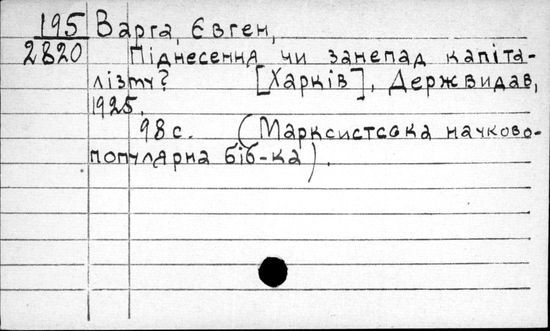 195 Варга, Євген,
2820 Піднесення чи занепад капіта-
лізму? [Харків], Держвидав,
1925.
98 с. (Марксистська науково-
популярна біб-ка).